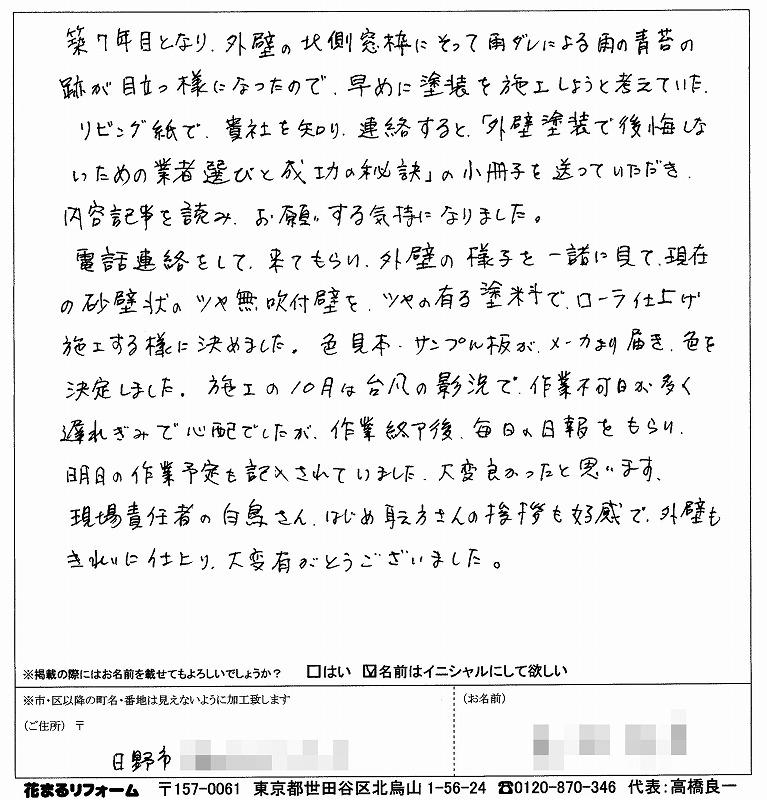 築7年目となり、外壁の北側窓枠にそって雨ダレによる雨の青苔の
跡が目立つ様になったので、早めに塗装を施工しようと考えていた。
リビング紙で、貴社を知り、連絡すると、「外壁塗装で後悔しな
いための業者選びと成功の秘訣」の小冊子を送っていただき、
内容記事を読み、お願いする気持になりました。
電話連絡をして、来てもらい、外壁の様子を一諸に見て、現在
の砂壁状のツヤ無吹付壁を、ツヤの有る塗料で、ローラ仕上げ
施工する様に決めました。色見本・サンプル板が、メーカより届き、色を
決定しました。施工の10月は台風の影況で、作業不可日が多く
遅れぎみで心配でしたが、作業終了後、毎日の日報をもらい、
明日の作業予定も記入されていました、大変良かったと思います、
現場責任者の白鳥さん、はじめ 方さんの挨拶も好感で、外壁も
きれいに仕上り、大変有がとうございました。
※掲載の際にはお名前を載せてもよろしいでしょうか? □はい ☑名前はイニシャルにして欲しい
※市・区以降の町名・番地は見えないように加工致します
(お名前)
(ご住所) 〒
日野市
花まるリフォーム 〒157-0061 東京都世田谷区北烏山 1-56-24 ☎0120-870-346 代表:高橋良一